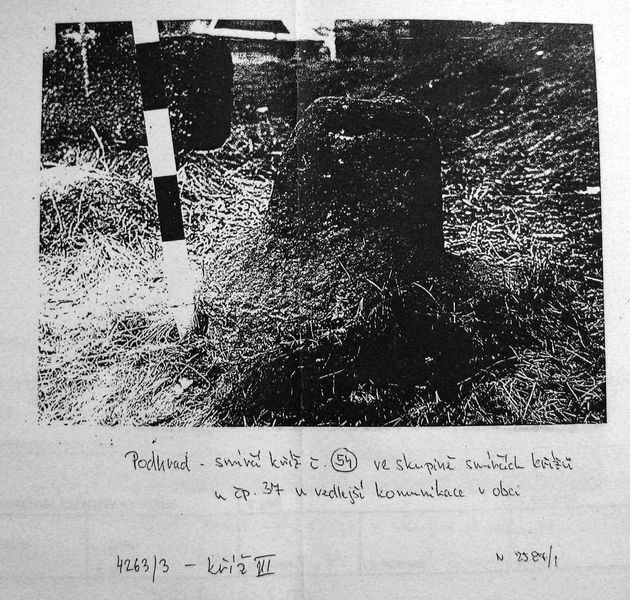 Podhrad - smírčí kříž č. 54 ve skupině smírčích křížů
u čp. 37 u vedlejší komunikace v obci
4263/3 - kříž III
N